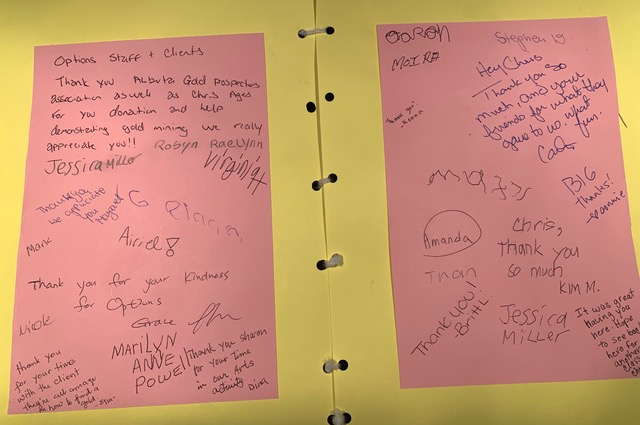 Options Staff + Clients
Thank you Alburta Gold Prospectors
association as well as Chris Ages
For you donation and help
demostrating gold mining we really
appreciate you!! Robyn RaeLynn
Jessica Miller Virginia H
Thank you
we appriciate
you
Margaret
G
Mark
Airiel!
Thank you for your Kindness
for Options
Nicole
Grace
MARILYN
ANNE
POWell
thank you
for your time
with the client
they're all amaze
on how to find
gold
Thank you sharon
for your Time
in our Arts
activity Dina
aaron
MOIRA
Stephen 19
Hey Chris
Thank you so
much, and your
friends for what they
gave to us. what
fun.
Thank you!
BIG
Thanks!
Amanda
Chris,
Thank you
so much
KIM M.
Thank you!
-Britt L
Jessica
Miller
It was great
having you
here. Hope
to see
here for
another